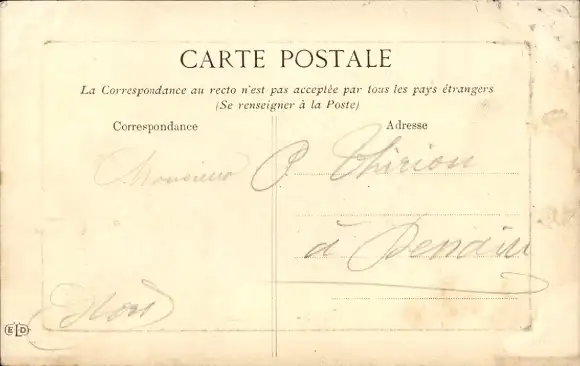 CARTE POSTALE
La Correspondance au recto n'est pas acceptée par tous les pays étrangers
(Se renseigner à la Poste)
Correspondance
Adresse
Monsieur P Thirion
à Denain
Nord
ELD